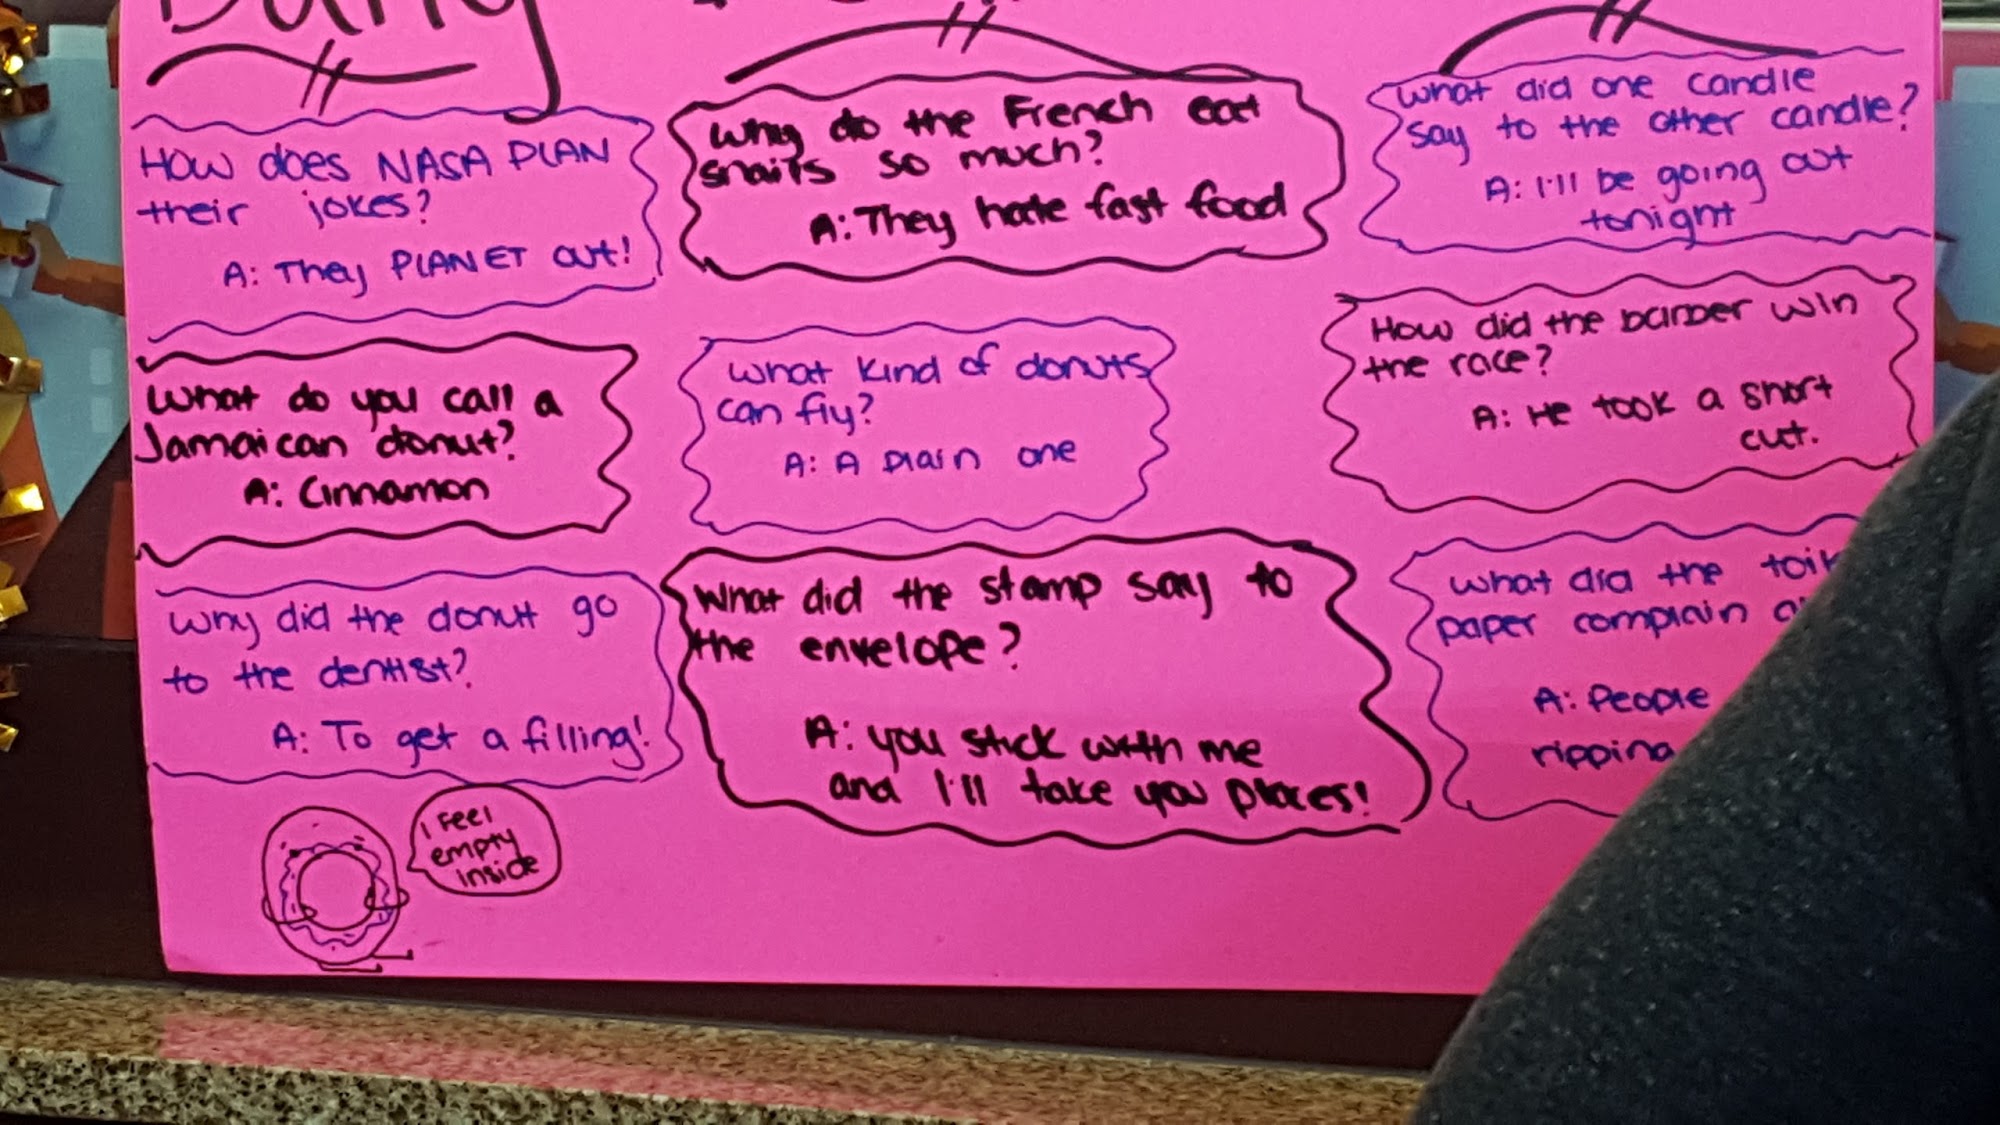 How does NASA PLAN
their jokes?
A: They PLANET out!
Why do the French eat
snails so much?
A: They hate fast food
What did one candle
say to the other candle?
A: I'll be going out
tonight
What do you call a
Jamaican donut?
A: Cinnamon
What kind of donuts
can fly?
A: A plain one
How did the barber win
the race?
A: He took a short
cut.
Why did the donut go
to the dentist?
A: To get a filling!
What did the stamp say to
the envelope?
A: you stick with me
and I'll take you places!
What did the
paper complain
A: People
ripping
I feel
empty
inside